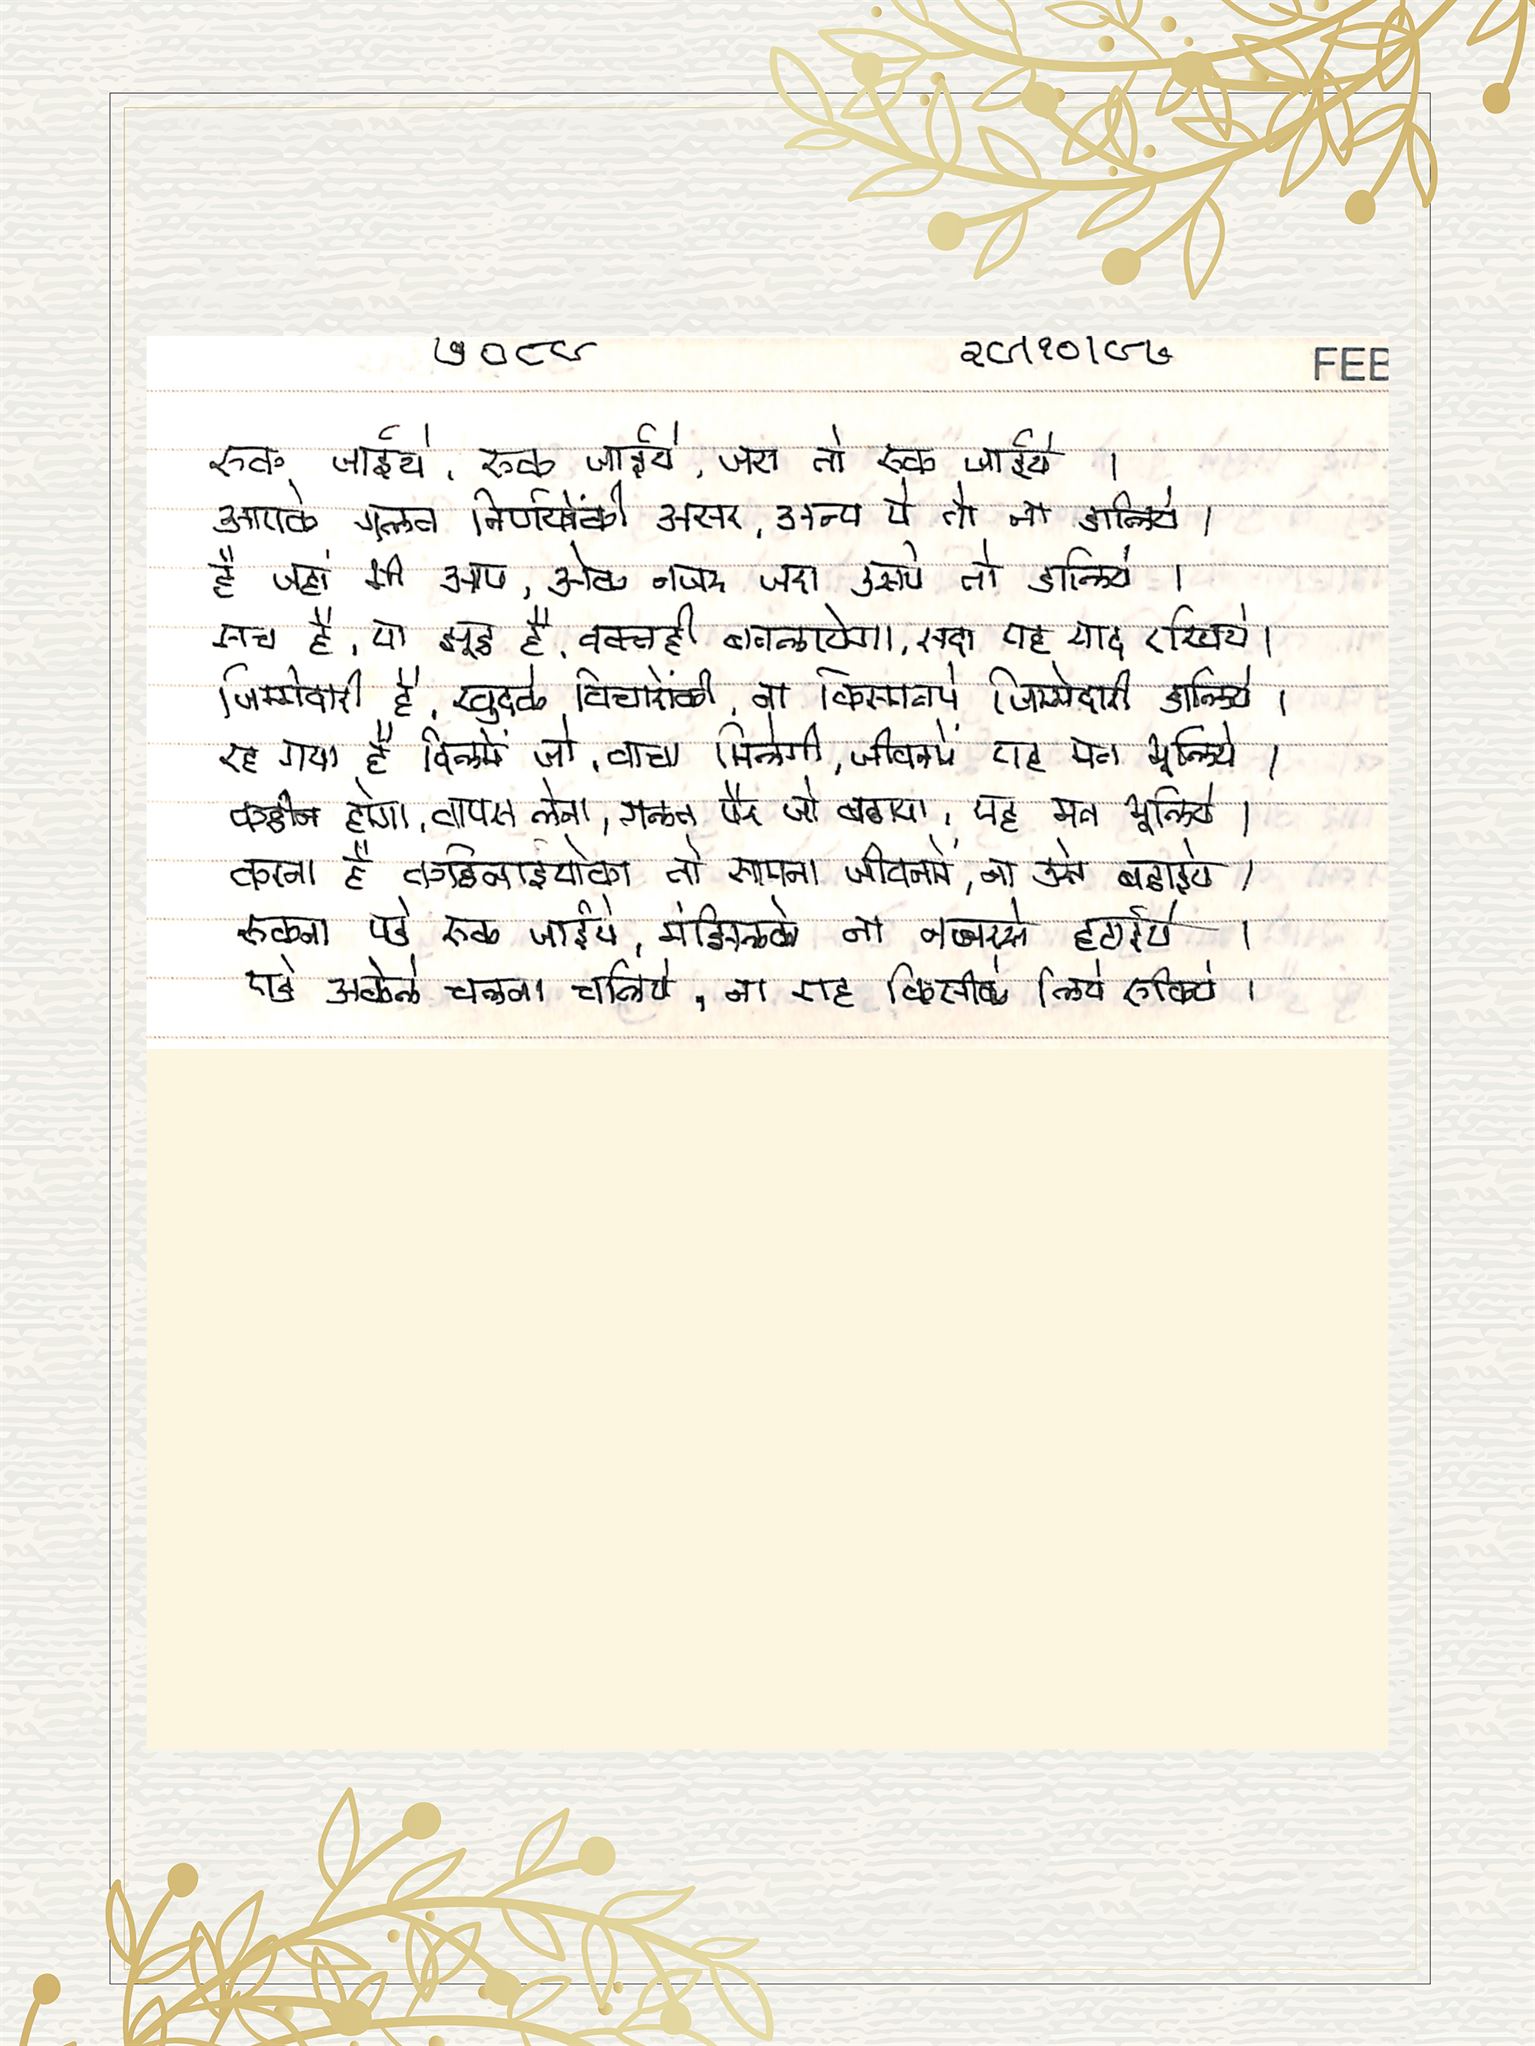 ७०८९ २९।१०।९७ FEB
रुक जाईये, रुक जाईये, जरा तो रुक जाईये ।
आपके गलत निर्णयोंकी असर, अन्य पे तो ना डालिये ।
है जहां भी आप, ओक नजर जरा उसपे तो डालिये ।
सच है, या झूठ है, वक्तही बतलायेगा, सदा यह याद रखिये ।
जिम्मेदारी है, खुदके विचारोंकी, ना किस्मतपे जिम्मेदारी डालिये ।
रह गया है दिलमें जो, वाचा मिलेगी, जीवनमें यह मत भूलिये ।
कठीन होगा, वापस लेना, गलत पैर जो बढाया, यह मत भूलिये ।
करना है कठिनाईयोका तो सामना जीवनमें, ना उसे बढाईये ।
रुकना पडे रुक जाईये, मंझिलको ना नजरसे हटाईये ।
पडे अकेले चलना चलिये, ना राह किसीके लिये रुकिये ।